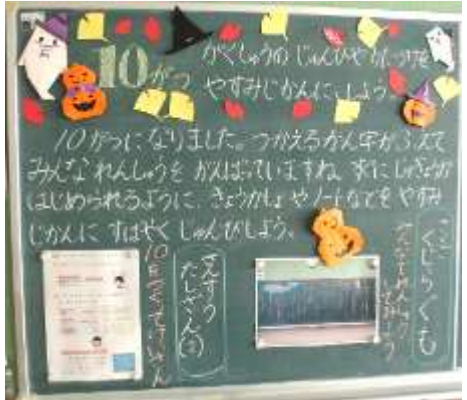 10がつ
がくしゅうの じゅんびや かたづけを
やすみじかんに しよう。
10がつになりました。つかえるかん字がふえて
みんな れんしゅうを がんばっていますね。すぐに じゅぎょうが
はじめられるように、きょうかしょ や ノートなどを やすみ
じかんに すばやく じゅんびしよう。
さんすう
たしざん(2)
くじらぐも